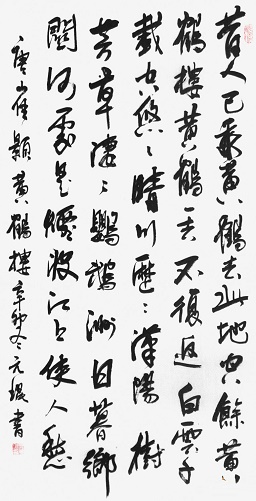 昔人已乘黄鶴去此地空餘黄
鶴樓黄鶴一去不復返白雲千
載空悠々晴川歷々漢陽樹
芳草淒々鸚鵡洲日暮鄉
關何處是煙波江上使人愁
唐崔顥黄鶴樓辛卯冬元琨書